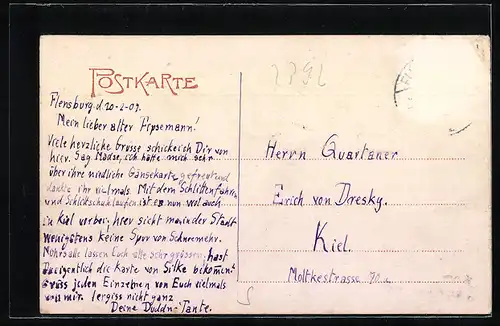 POSTKARTE
Flensburg. d. 20-2-09.
Mein lieber alter Fipsemann!
Viele herzliche Grüsse schicke ich Dir von
hier. Sag Madse, ich hätte mich sehr
über ihre niedliche Gänsekarte gefreut und
danke ihr vielmals. Mit dem Schlittenfahren
und Schlittschuhlaufen ist es nun wol auch
in Kiel vorbei, hier sieht man in der Stadt
wenigstens keine Spur von Schnee mehr.
lassen Euch alle sehr grüssen, hast
Du eigentlich die Karte von Silke bekommen?
Grüss jeden Einzelnen von Euch vielmals
von mir. Vergiss nicht ganz
Deine Tante.
Herrn Quartaner
Erich von Dresky.
Kiel.
Moltkestrasse